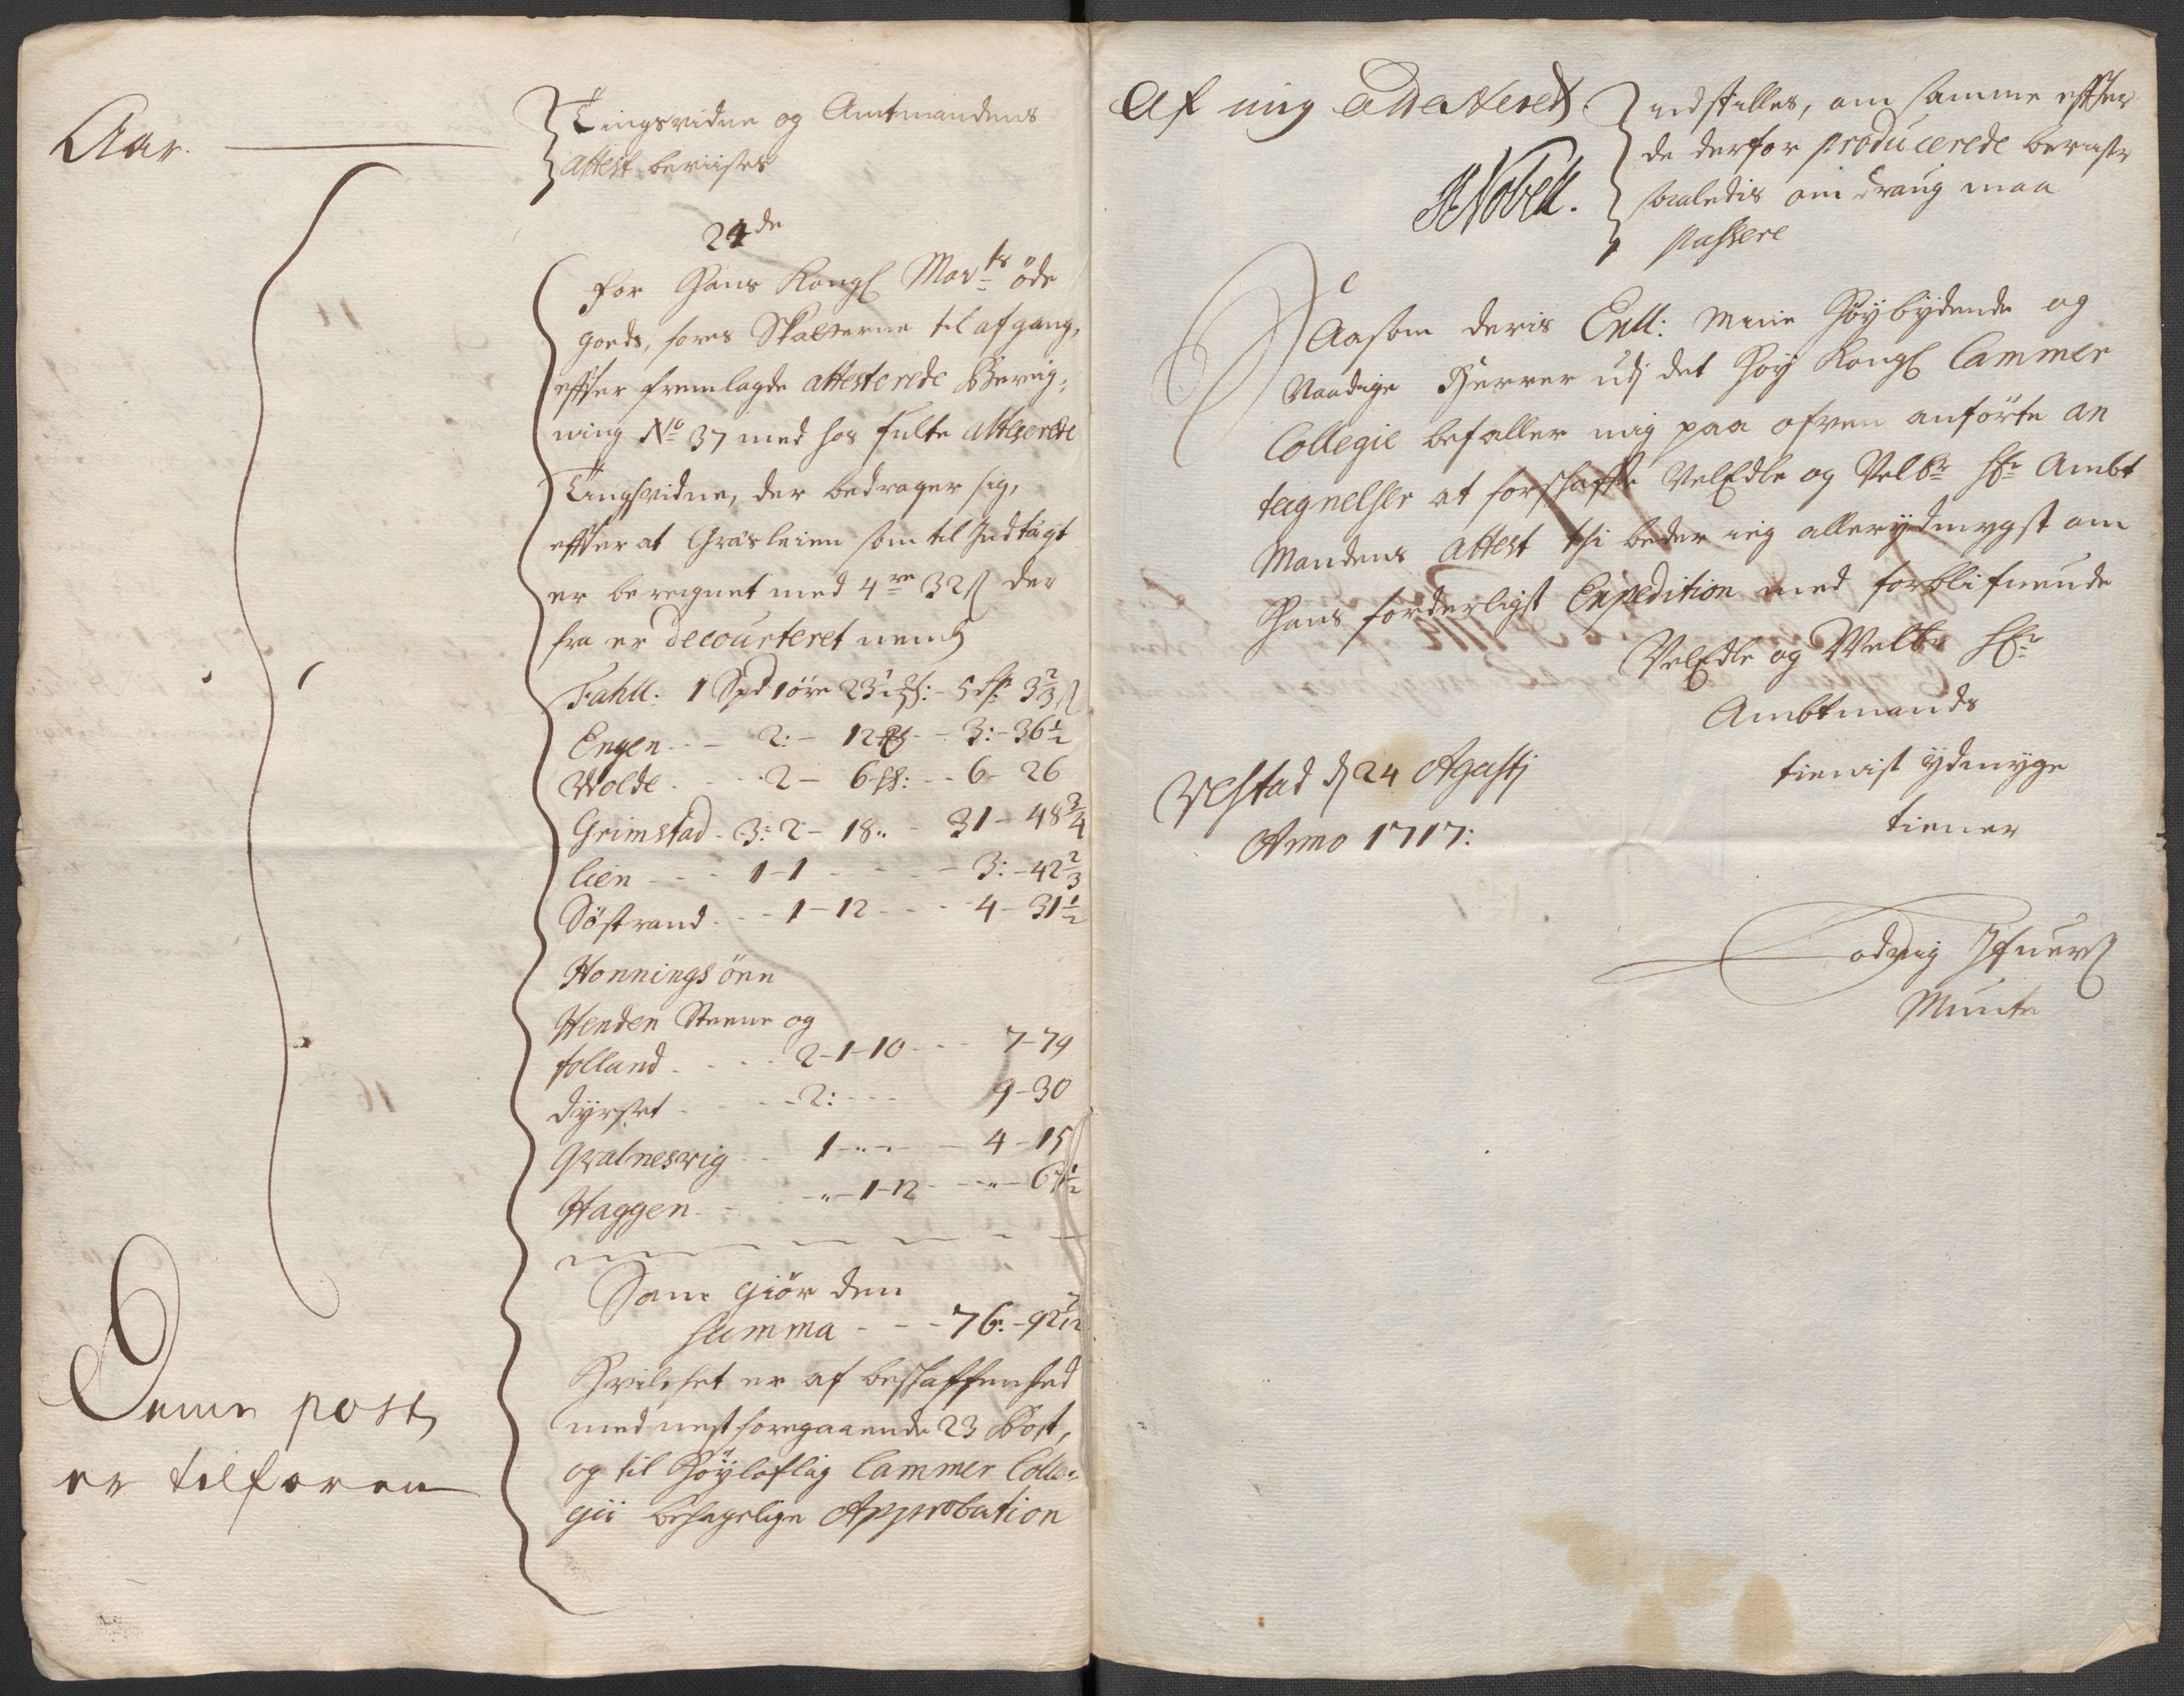 Aar.
Tingsvidne og Amtmandens
attest beviises
24de
For Hans Kongl Mayts öde
goeds, fores Skatterne til afgang,
effter fremlagde attesterede Bereig-
ning No 37 med hos fulte atterede
Tingsvidne, der bedrager sig,
effter at Græsleien som til Indtägt
er bereignet med 4 32 ß der
fra er decourteret neml
Fahll. 1 Spd 1 öre 23 5 3 2/3 ß
Engen - 2: - 12 - 3: - 36 1/2
Wolde - 2 - 6 - 6 - 26
Grimstad - 3: 2 - 18 - 31 - 48 3/4
Lien - 1 - 1 - 3: - 42 2/3
Söstrand - 1 - 12 - 4 - 31 1/2
Honningsöen
Henden Steene og
folland - 2 - 1 - 10 - 7 - 79
dyrset - 2: - 9 - 30
Qvalnesvig - 1 - 4 - 15
Haggen - " - 1 - 12 - " - 67 1/2
Som giör den
summa - 76: - 92 7/12
Hvilchet er af beschaffenhed
med nest foregaaende 23 Post,
og til Höyloflig Cammer Colle-
gii behagelige Approbation
Denne post
er tilforen
Af mig attesteret
HNobell.
indstilles, om samme effter
de derfor producerede beviser
saaledis omdrang maa
passere
Saasom deris Exll: Mine Höybydende og
Naadige Herrer udj det Höy Kongl Cammer
Collegie befaller mig paa ofven anförte an
teignelser at forschaffe VelEdle og Velbr Hr Ambt
Mandens attest thi beder ieg allerydmygst om
Hans forderligst Expedition med forblifvende
VelEdle og Welbr Hr
Ambtmands
tienist ydmyge
tiener
Vestad d 24 Agustj
Anno 1717:
Lodvig Ifuerß
Munte